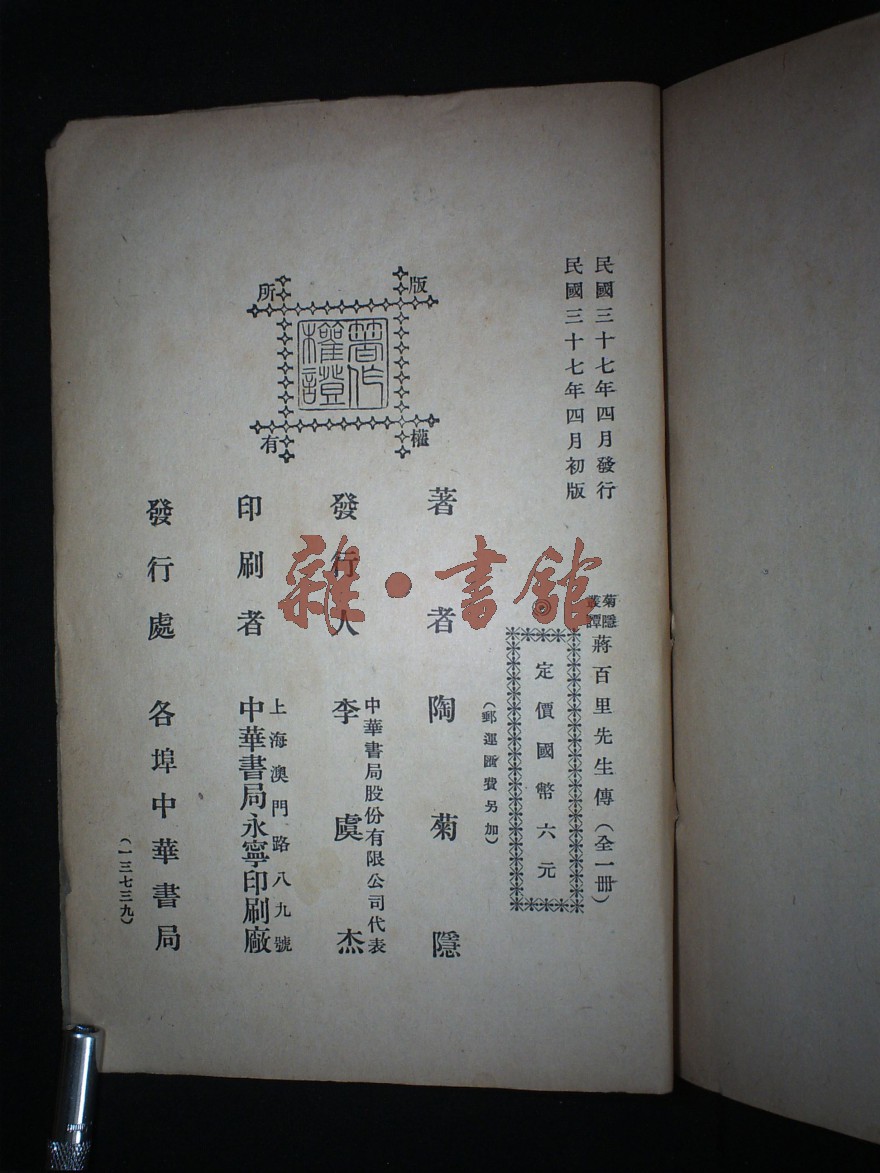 民國三十七年四月發行
民國三十七年四月初版
菊隱
叢譚
蔣百里先生傳（全一冊）
◎
定價國幣六元
（郵運匯費另加）
版權所有
著作權證
著者 陶菊隱
中華書局股份有限公司代表
發行人 李虞杰
上海澳門路八九號
印刷者 中華書局永寧印刷廠
發行處 各埠中華書局
（一三七三九）
雜·書館